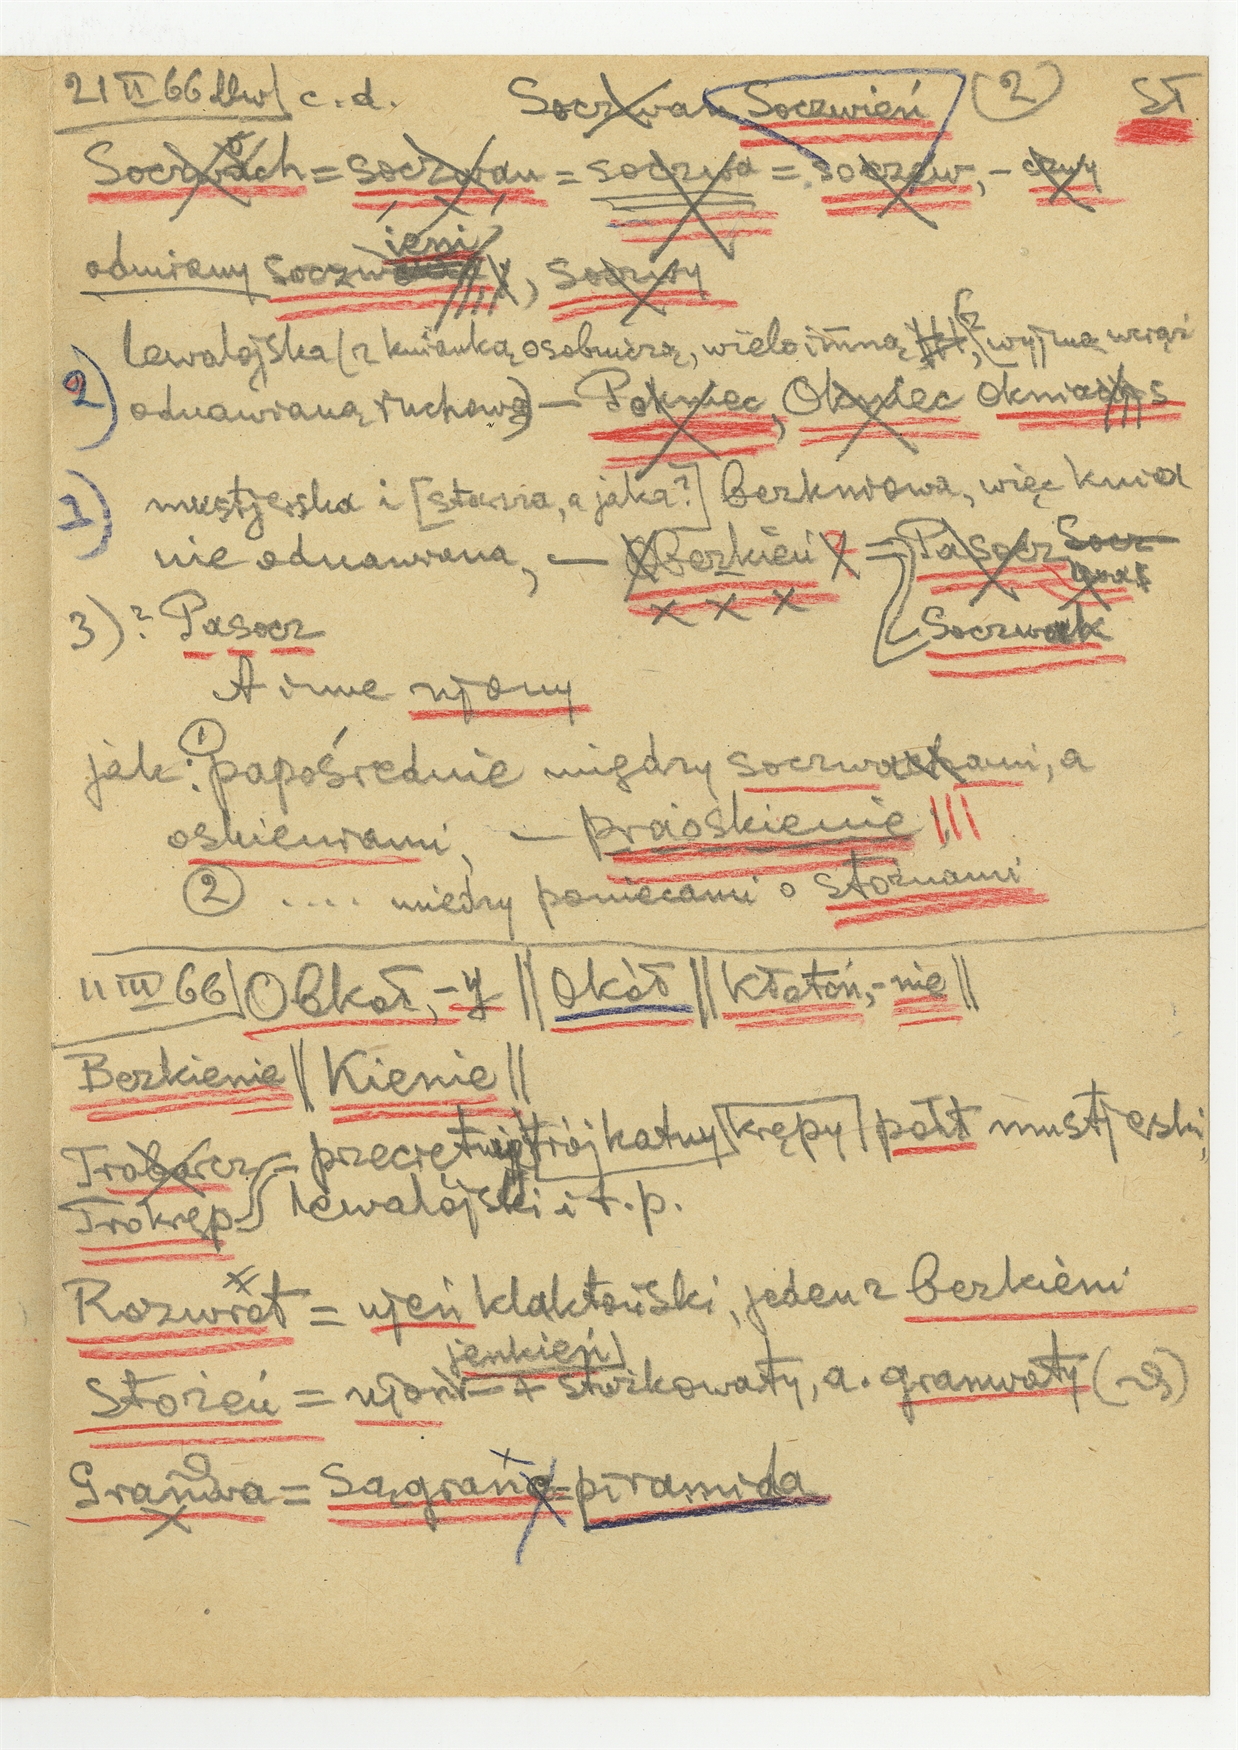 21 II 66 c.d. Soczwan Soczwień (2) ST
Soczwach = soczwan = soczwa = soczaw, - czwy
odmiany soczw ieni, soczwy
lewalojska (z knianką osobniczą, wieloimną, wyjmą wciąż
2) odnawianą ruchową) — Pokniec, Okniec oknias
1) mustjerska i [starsza, a jaka?] bezkniowa, więc knia
nie odnawiana, — Bezkień = Pasocz Socz
3) ? Pasocz Soczwak
A inne ujony
jak: ① papośrednie między soczwakami, a
oskieniami, — praoskienie !!!
② .... między poniecami o stożnami
11 III 66 Obkoł, -y || Okół || Kłatoń, -nie ||
Bezkienie || Kienie ||
Trobarcz = przeciętny trójkątny krępy połt mustjerski,
Trokręp lewalojski i t.p.
Rozwrot = ujeń klaktoński, jeden z bezkieni
jenkień
Stożeń = ujoń ± stożkowaty, a. graniwaty
Grańwa = Sągrańa = piramida